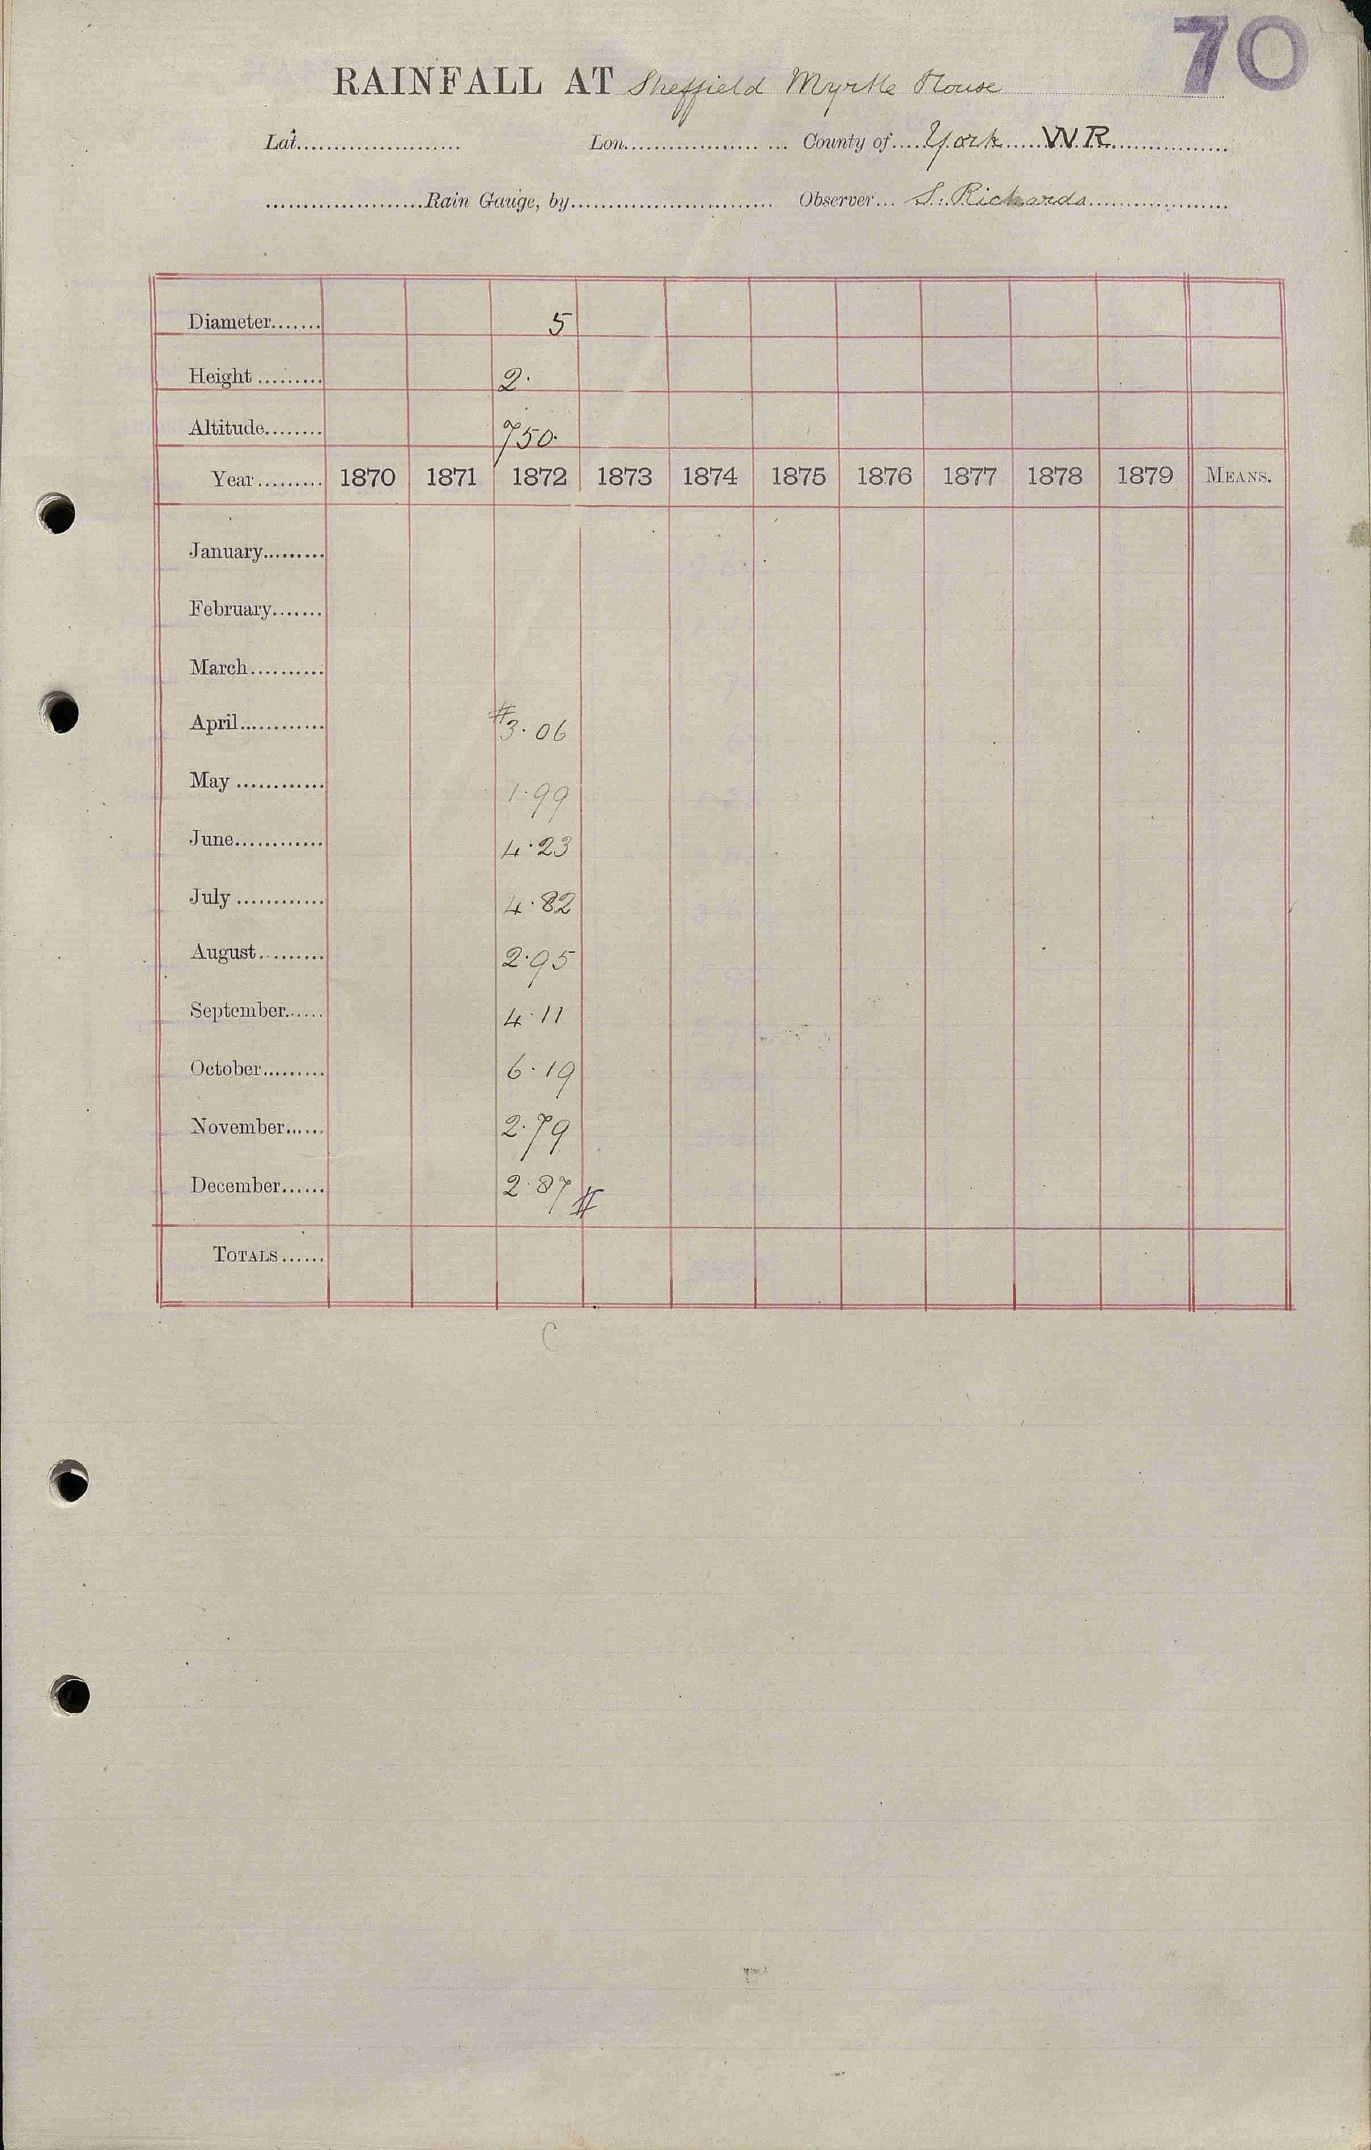 70
RAINFALL AT Sheffield Myrtle House
Lat...................... Lon.................. ... County of.....York......W.R................
......................Rain Gauge, by............................ Observer... S. Richards....................
Diameter....... 5
Height ......... 2.
Altitude........ 750.
Year......... 1870 1871 1872 1873 1874 1875 1876 1877 1878 1879 MEANS.
January.........
February.......
March..........
April............ #3.06
May ............ 1.99
June............ 4.23
July ............ 4.82
August......... 2.95
September...... 4.11
October......... 6.19
November...... 2.79
December...... 2.87 #
TOTALS......
C